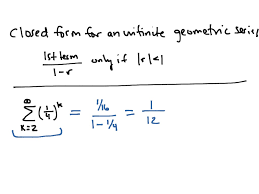 Closed form for an infinite geometric series
1st term / 1-r only if |r|<1
∞ Σ k=2 (1/4)^k = 1/16 / 1-1/4 = 1/12